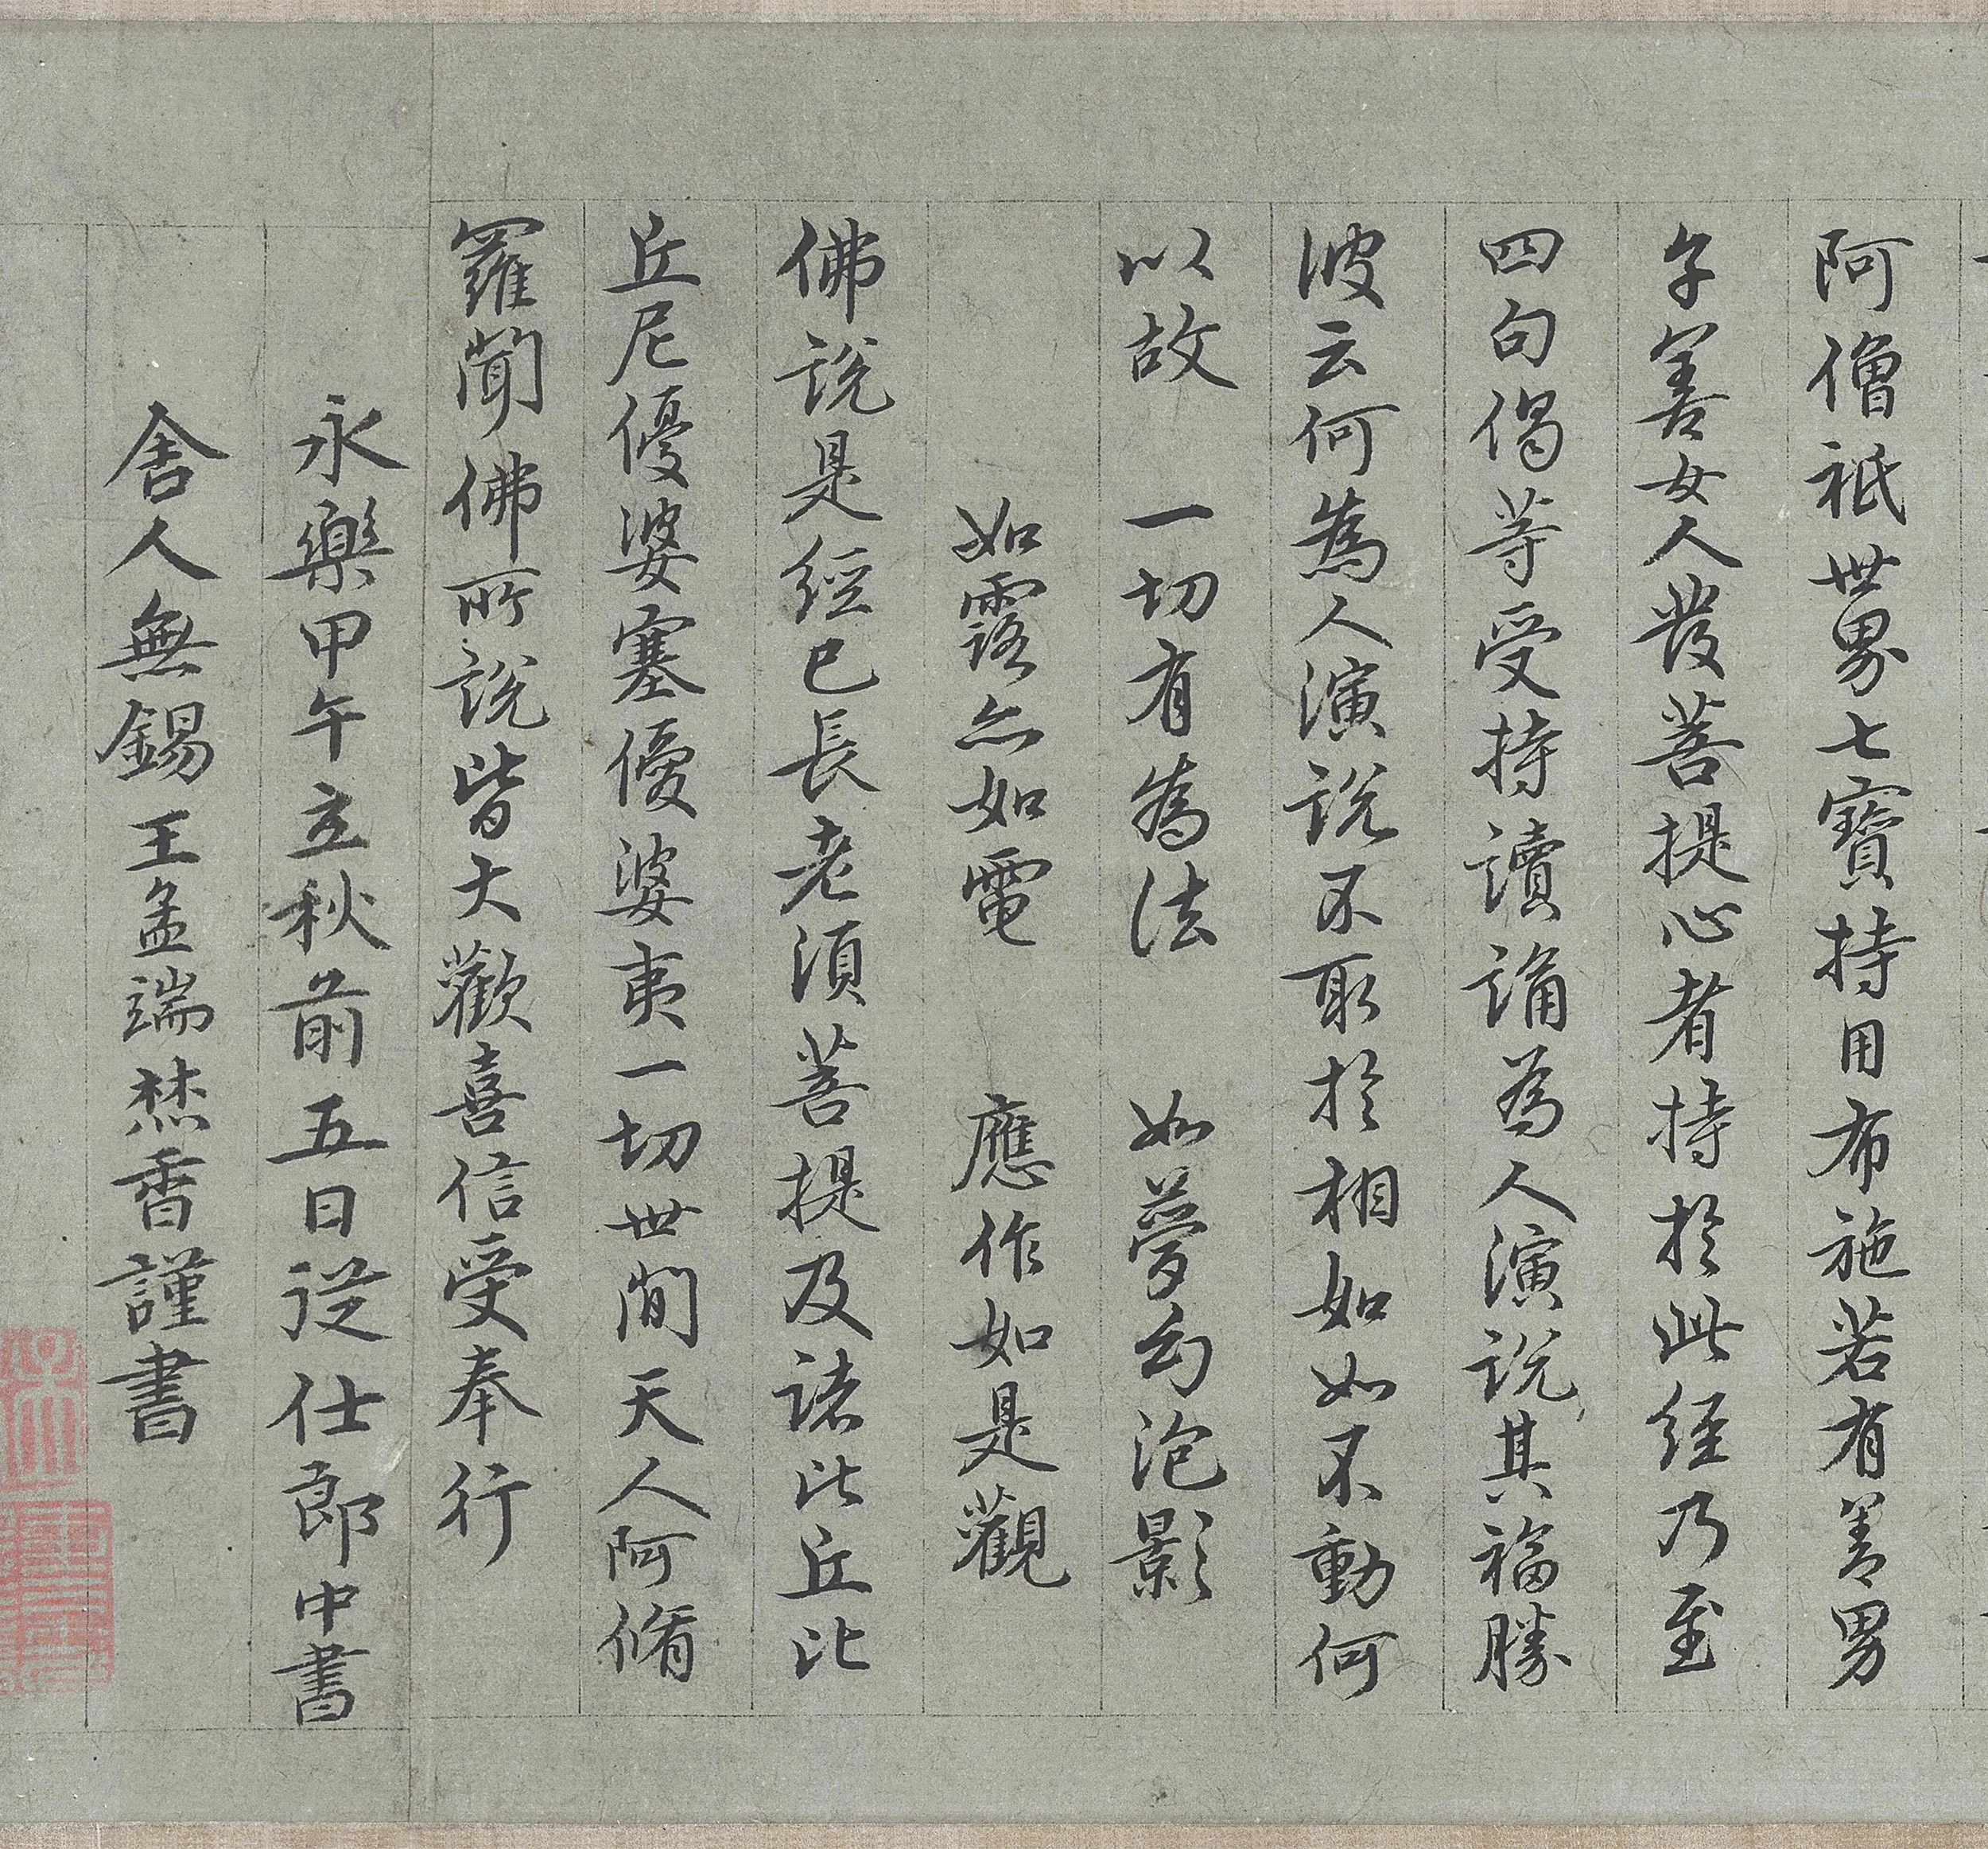 阿僧祇世界七寶持用布施若有善男
子善女人發菩提心者持於此經乃至
四句偈等受持讀誦為人演說其福勝
彼云何為人演說不取於相如如不動何
以故　一切有為法　如夢幻泡影
如露亦如電　應作如是觀
佛說是經已長老須菩提及諸比丘比
丘尼優婆塞優婆夷一切世間天人阿脩
羅聞佛所說皆大歡喜信受奉行
永樂甲午立秋前五日從仕郎中書
舍人無錫王孟端焚香謹書